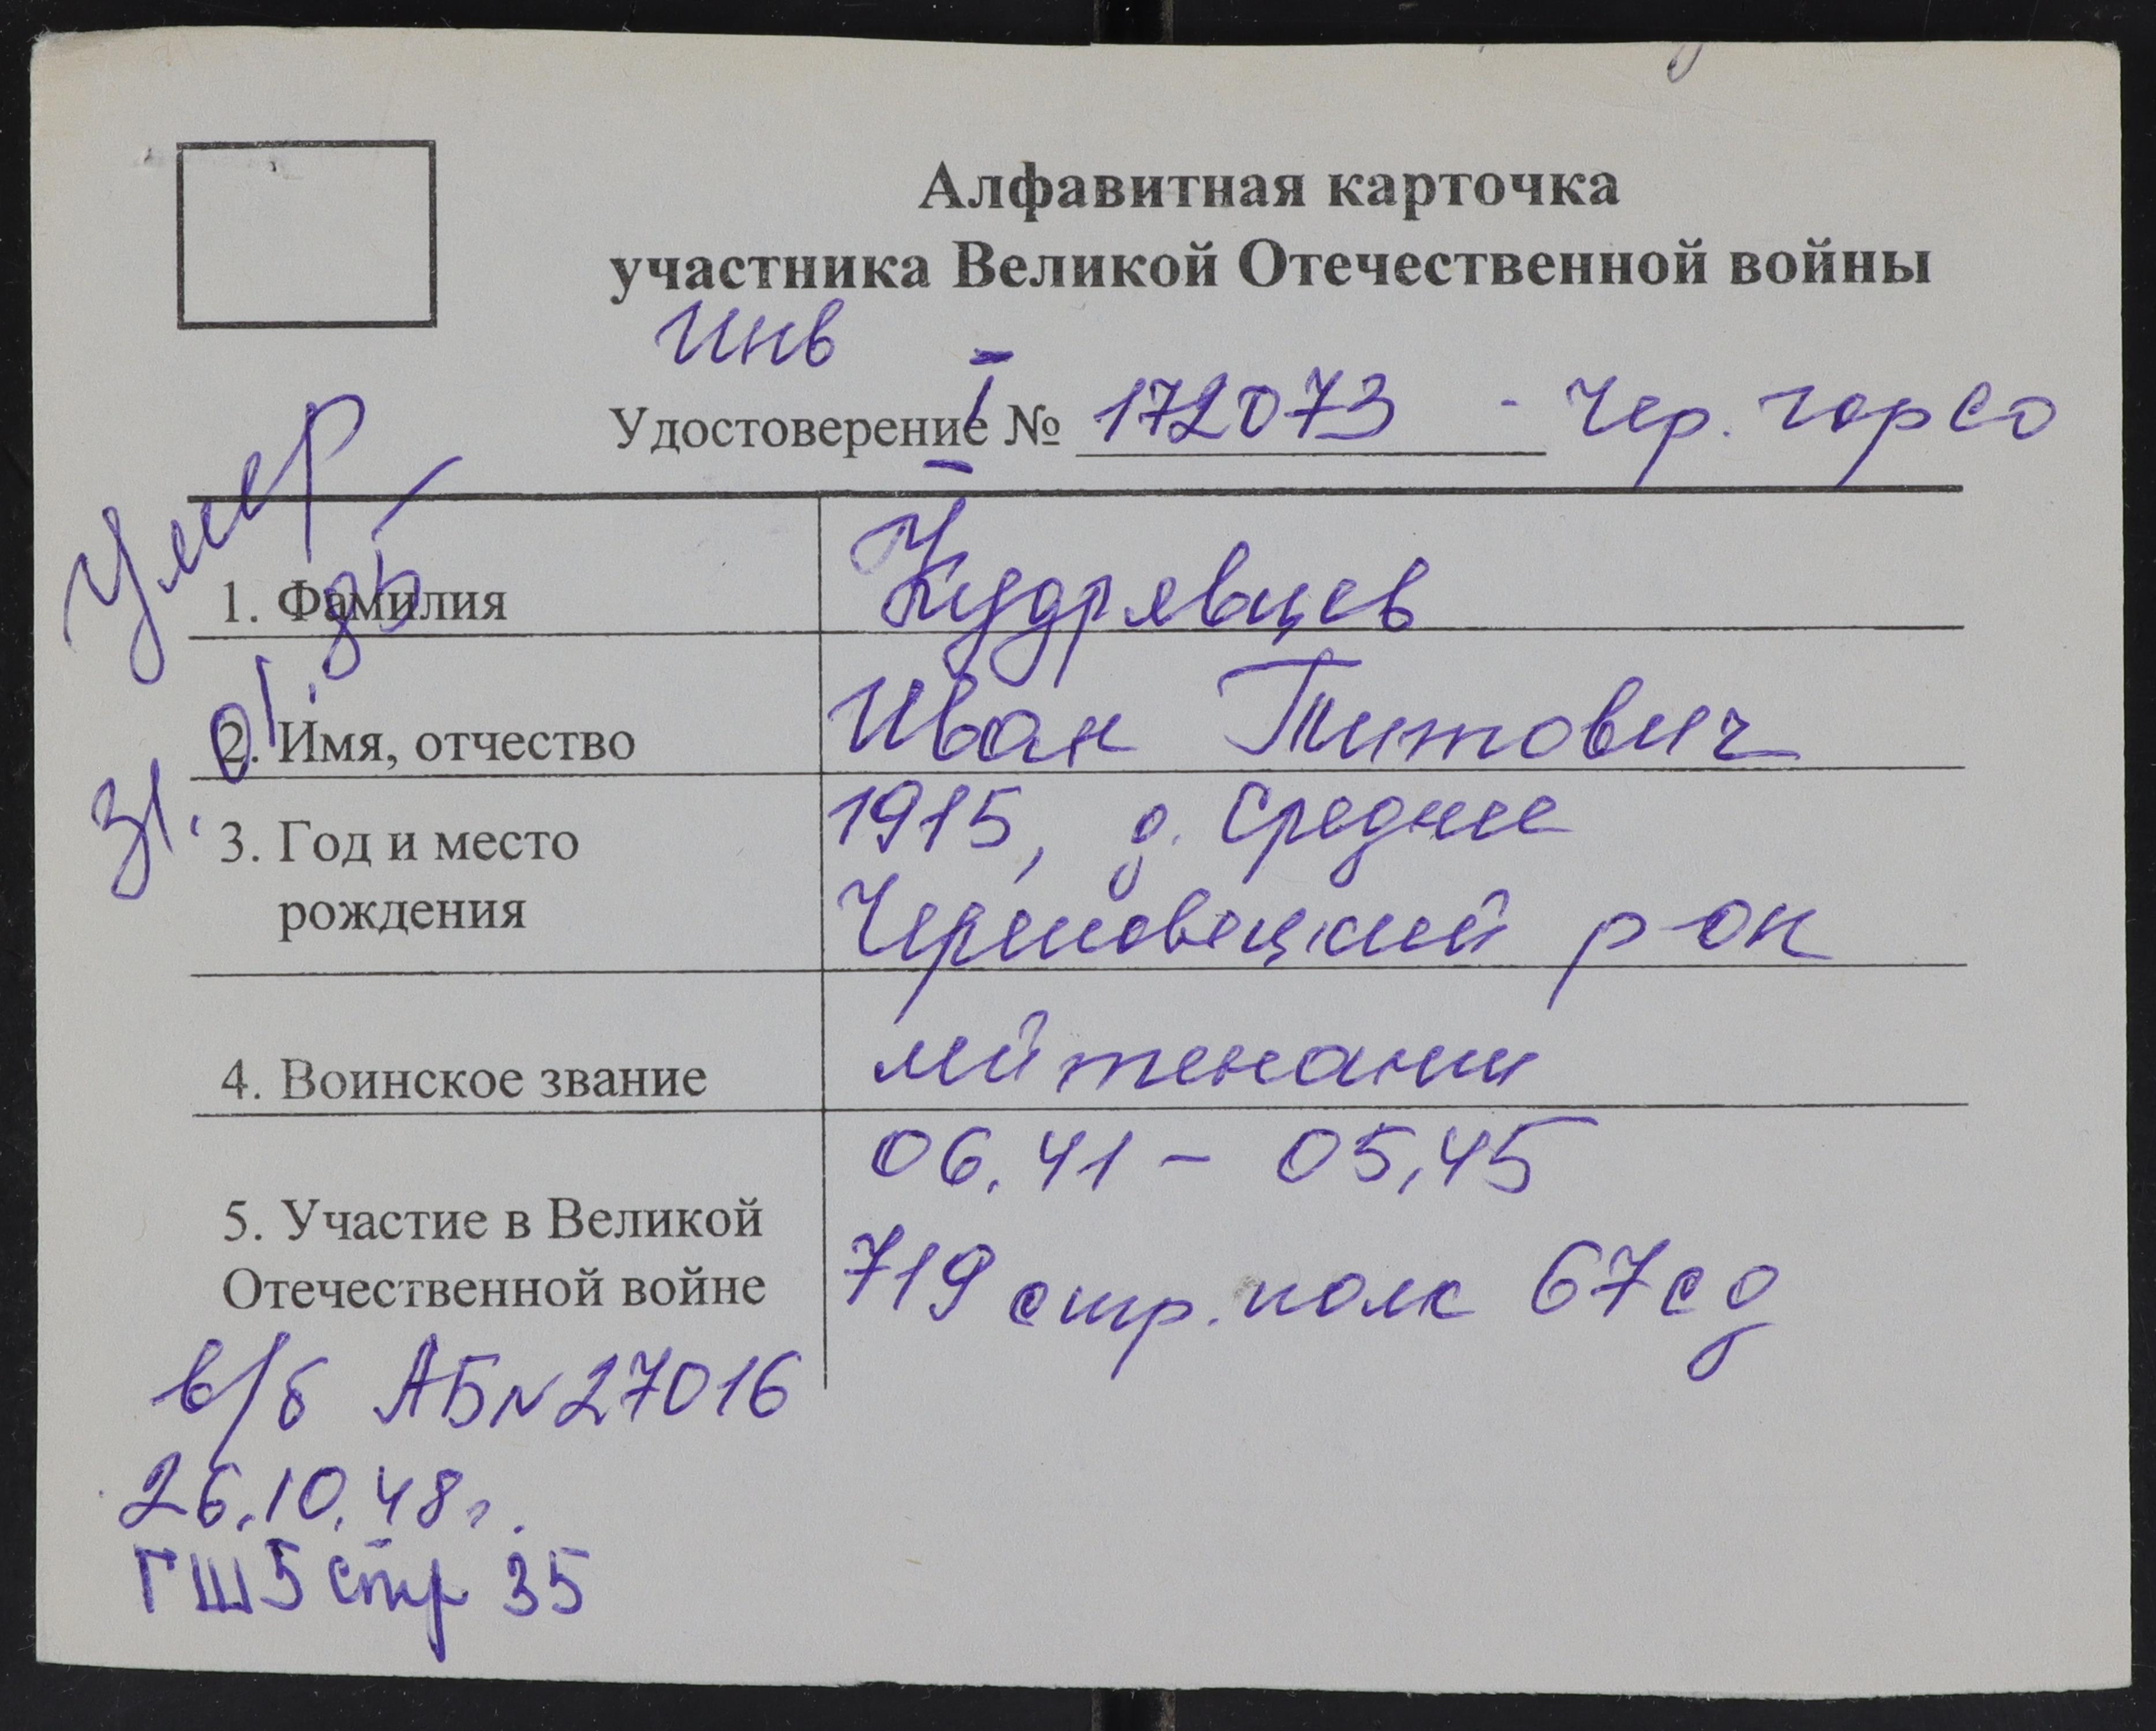 Алфавитная карточка
участника Великой Отечественной войны
инв
Удостоверение № I 172073 - Чер. горсо
Умер
31.01.85
1. Фамилия Кудрявцев
2. Имя, отчество Иван Титович
3. Год и место 1915, д. Среднее
рождения Череповецкий р-он
4. Воинское звание лейтенант
06.41 - 05.45
5. Участие в Великой
Отечественной войне 719 стр. полк 67 сд
в/б АБ N 27016
26.10.48г.
ГШ5 стр 35